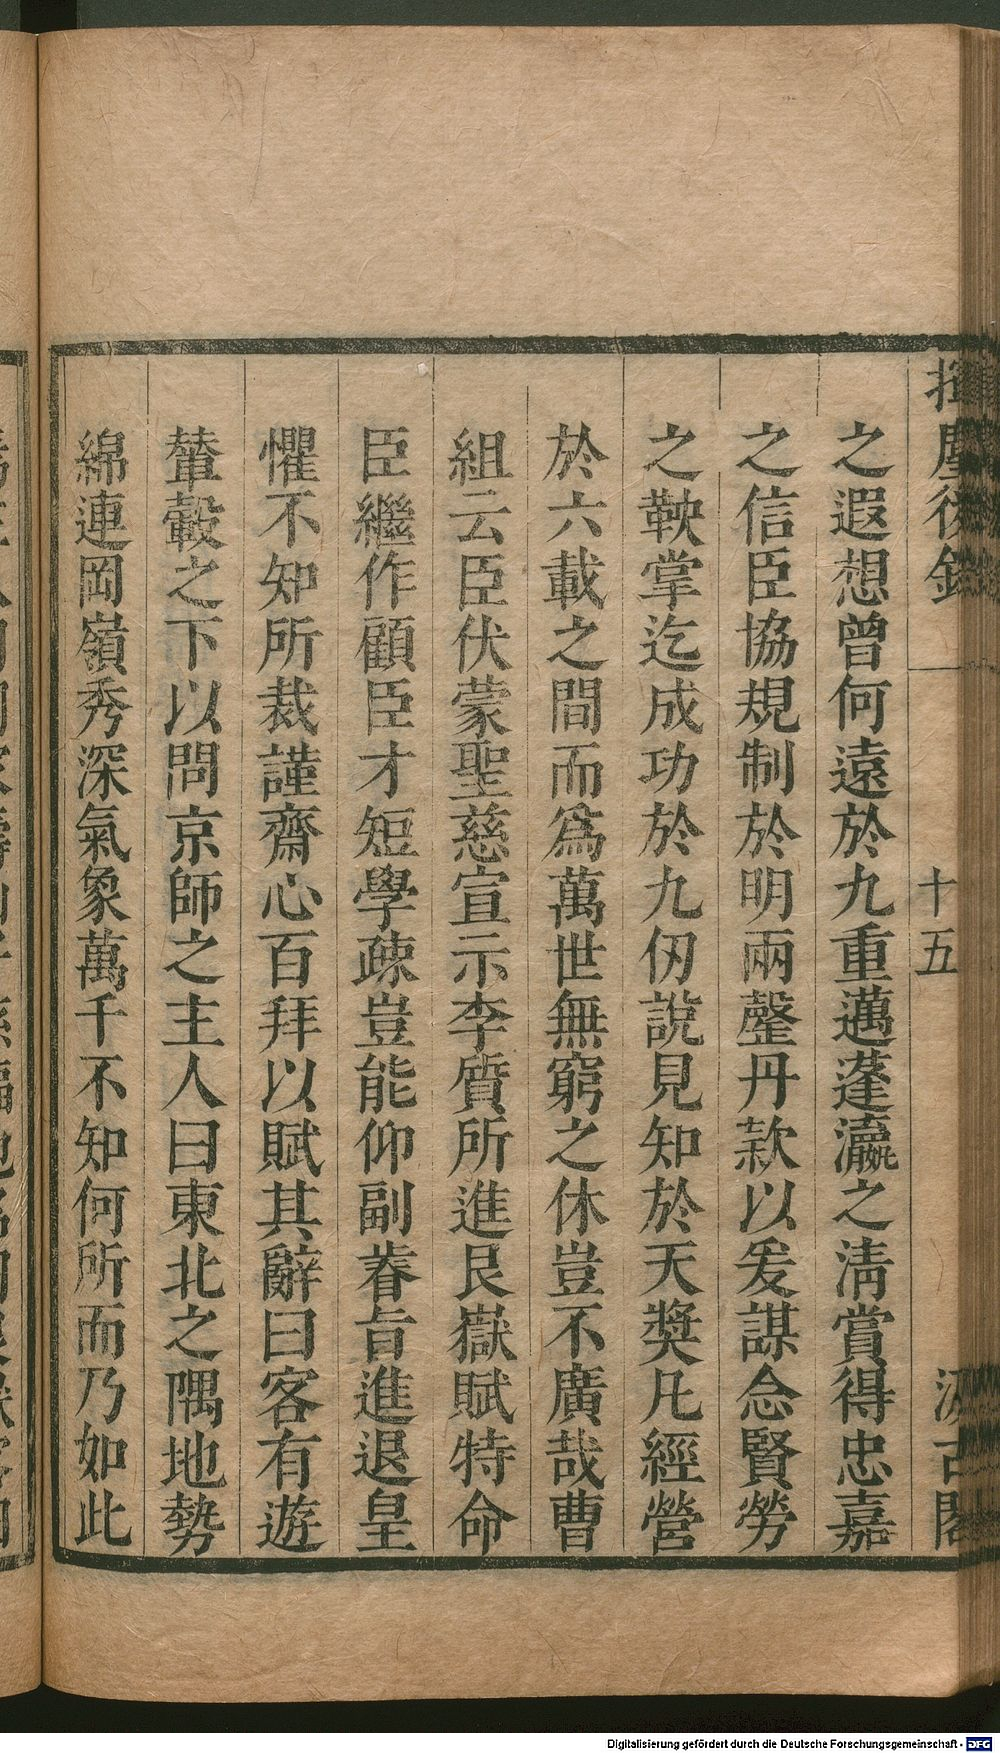 揮麈後錄
十五
汲古閣
之遐想曾何遠於九重邁蓬瀛之淸賞得忠嘉
之信臣協規制於明兩罄丹款以爰謀念賢勞
之鞅掌迄成功於九仞說見知於天獎凡經營
於六載之間而爲萬世無窮之休豈不廣哉曹
組云臣伏蒙聖慈宣示李質所進艮嶽賦特命
臣繼作顧臣才短學疎豈能仰副眷旨進退皇
懼不知所裁謹齋心百拜以賦其辭曰客有遊
輦轂之下以問京師之主人曰東北之隅地勢
綿連岡嶺秀深氣象萬千不知何所而乃如此
Digitalisierung gefördert durch die Deutsche Forschungsgemeinschaft - DFG